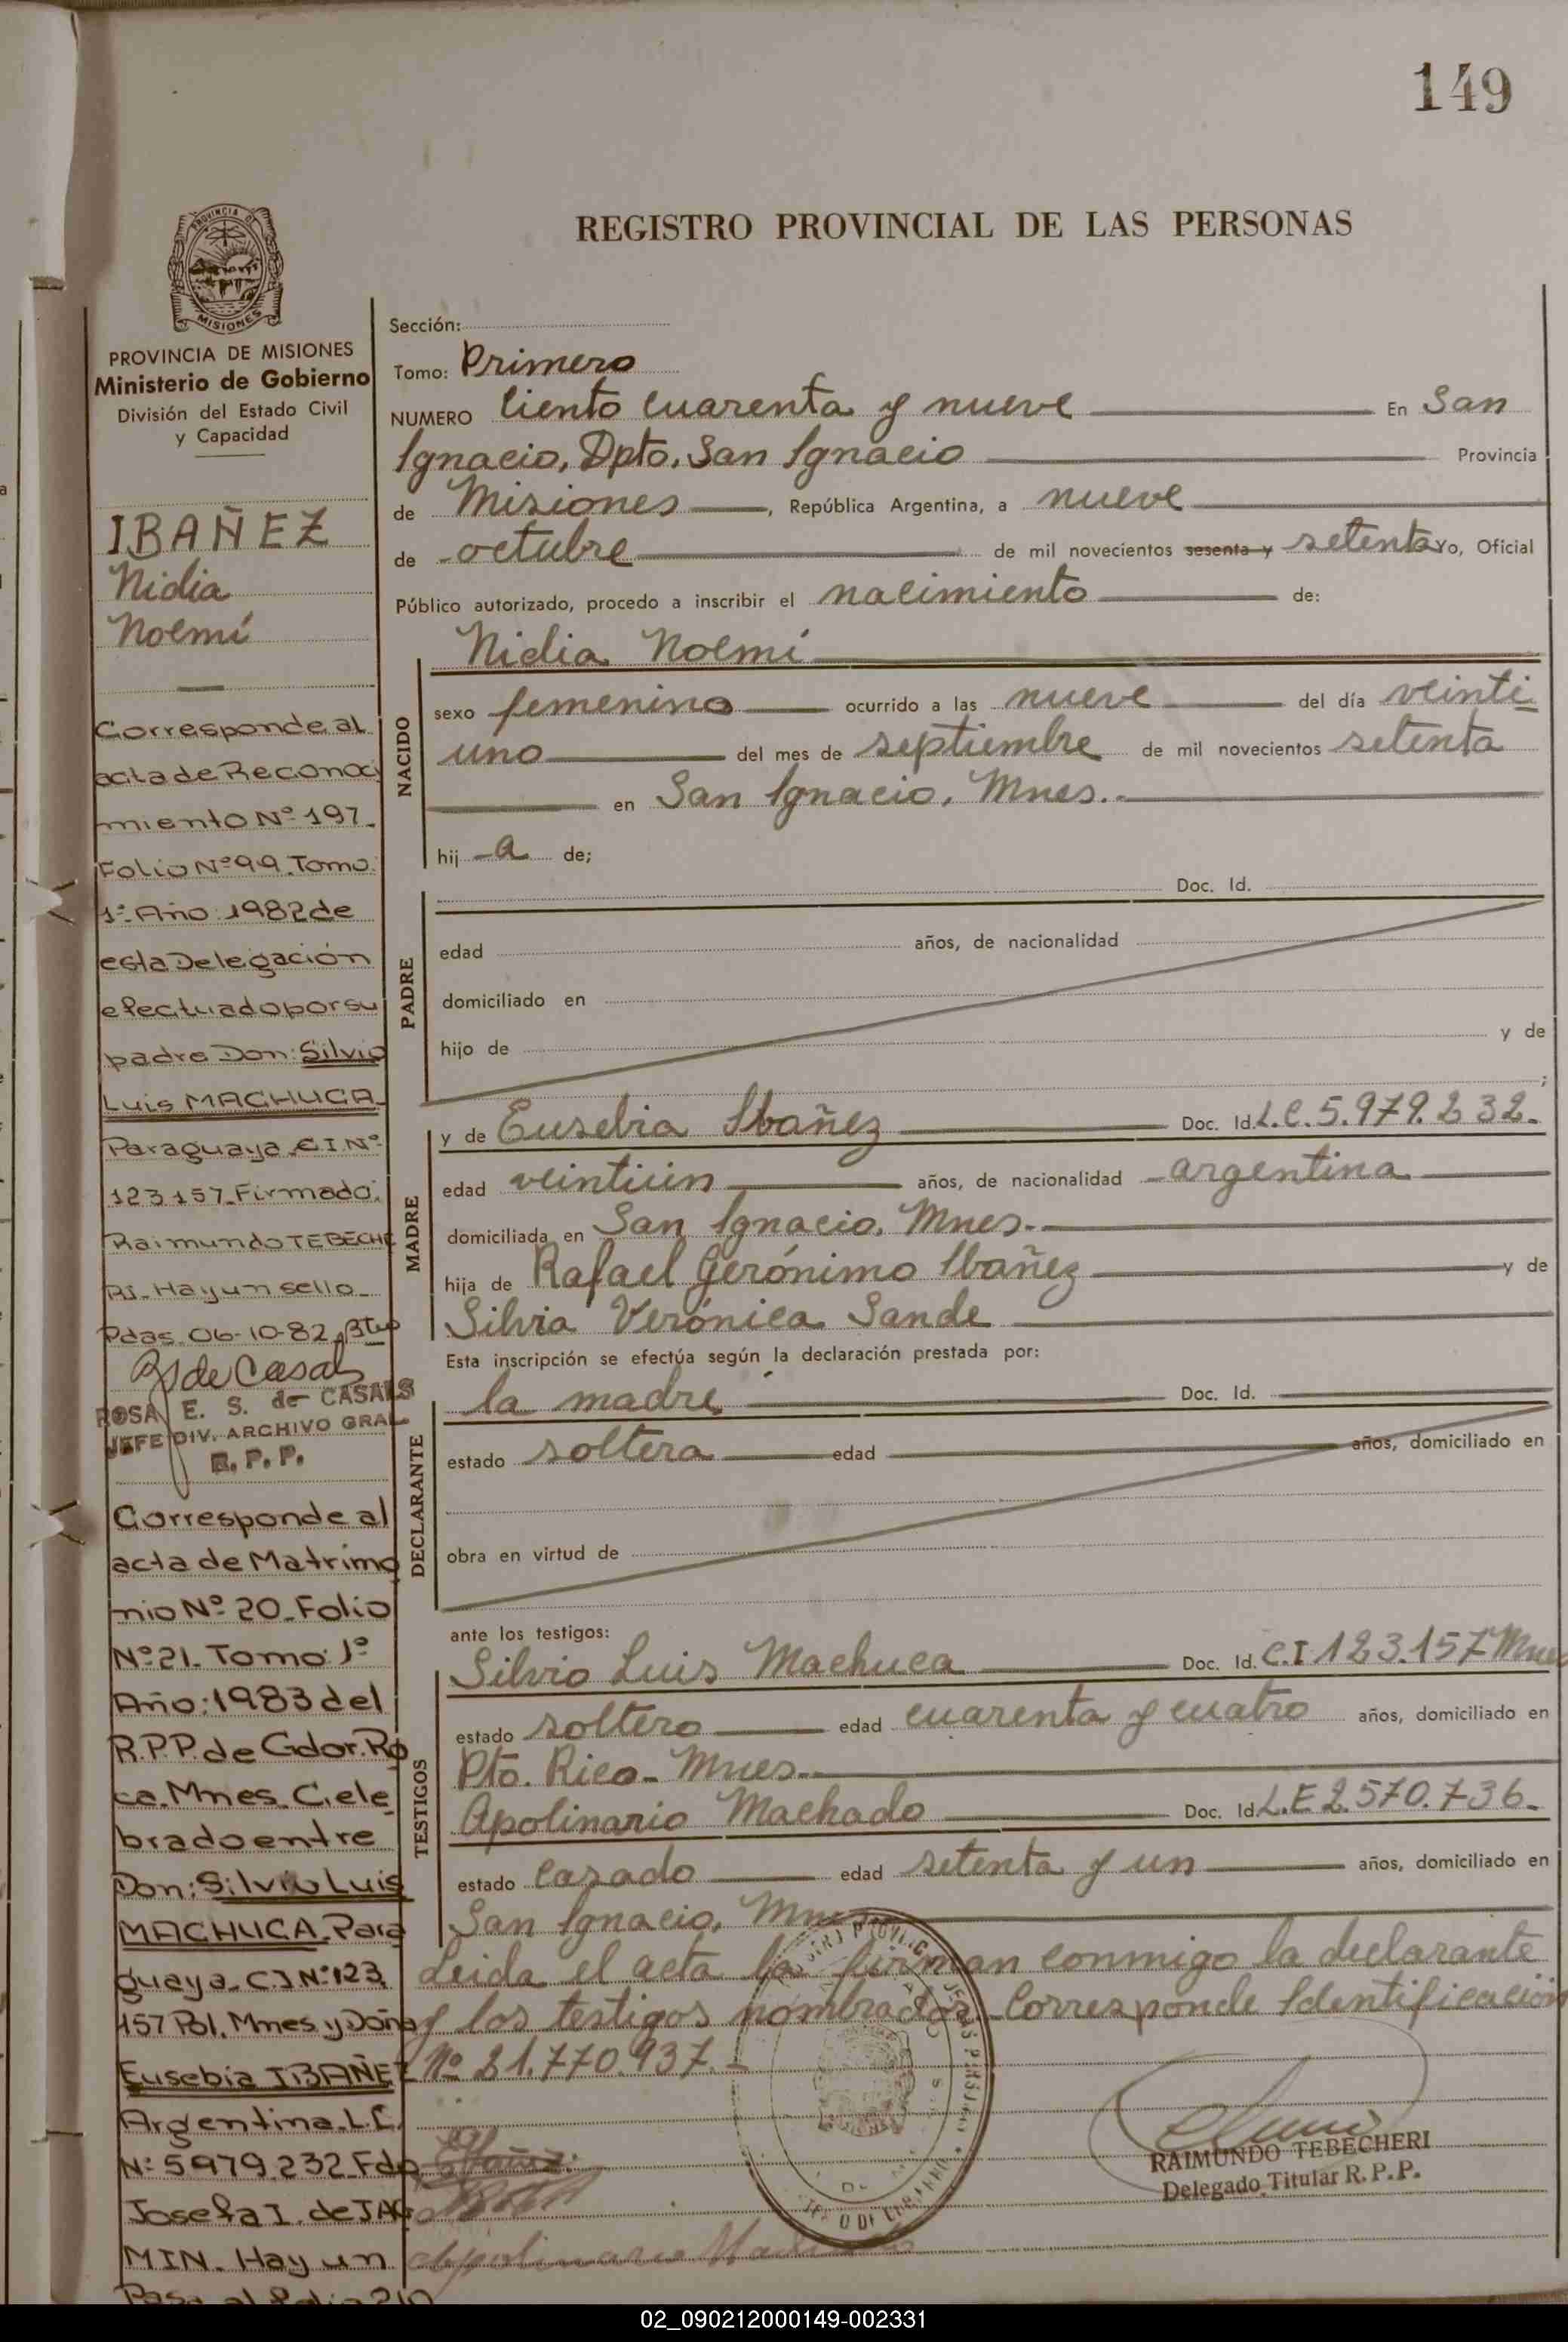 149
REGISTRO PROVINCIAL DE LAS PERSONAS
PROVINCIA DE
MISIONES
PROVINCIA DE MISIONES
Ministerio de Gobierno
División del Estado Civil
y Capacidad
IBAÑEZ
Nidia
Noemí
Corresponde al
acta de Reconoci
miento Nº 197_
Folio Nº 99_Tomo:
1º- Año: 1982 de
esta Delegación
efectuado por su
padre Don: Silvio
Luis MACHUCA_
Paraguaya_C.I.Nº
123157_Firmado:
Raimundo TEBECHE
RI_Hay un sello_
Pdas_06-10-82_
R S de Casals
ROSA E. S. de CASALS
JEFE DIV. ARCHIVO GRAL
R. P. P.
Corresponde al
acta de Matrimo
nio Nº 20_Folio
Nº 21_ Tomo: 1º
Año: 1983 del
R.P.P. de Gdor. Ro
ca. Mnes. Cele
brado entre
Don: Silvio Luis
MACHUCA_Para
guaya_C.I Nº 123.
157 Pol. Mnes y Doña
Eusebia IBAÑEZ
Argentina_L.C.
Nº 5979.232_Fdo
Josefa I. de JAC
MIN_ Hay un
Pasa al Folio 210
Sección:
Tomo: Primero
NUMERO Ciento cuarenta y nueve En San
Ignacio, Dpto. San Ignacio Provincia
de Misiones, República Argentina, a nueve
de octubre de mil novecientos sesenta y setenta yo, Oficial
Público autorizado, procedo a inscribir el nacimiento de:
NACIDO
Nidia Noemí
sexo femenino ocurrido a las nueve del día veinti
uno del mes de septiembre de mil novecientos setenta
en San Ignacio, Mnes.-
hij -a de;
PADRE
Doc. Id.
edad años, de nacionalidad
domiciliado en
hijo de y de
;
MADRE
y de Eusebia Ibañez Doc. Id. L.C. 5.979.232.
edad veintiún años, de nacionalidad argentina
domiciliada en San Ignacio, Mnes.-
hija de Rafael Gerónimo Ibañez y de
Silvia Verónica Sande
Esta inscripción se efectúa según la declaración prestada por:
DECLARANTE
la madre Doc. Id.
estado soltera edad años, domiciliado en
obra en virtud de
ante los testigos:
TESTIGOS
Silvio Luis Machuca Doc. Id. C.I 123.157 Mnes
estado soltero edad cuarenta y cuatro años, domiciliado en
Pto. Rico- Mnes.-
Apolinario Machado Doc. Id. L.E 2.570.736.
estado casado edad setenta y un años, domiciliado en
San Ignacio, Mnes.-
Leida el acta la firman conmigo la declarante
y los testigos nombrados. Corresponde Identificación
Nº 21.770.937.-
Apolinario Machado
RAIMUNDO TEBECHERI
Delegado Titular R.P.P.
02_090212000149-002331